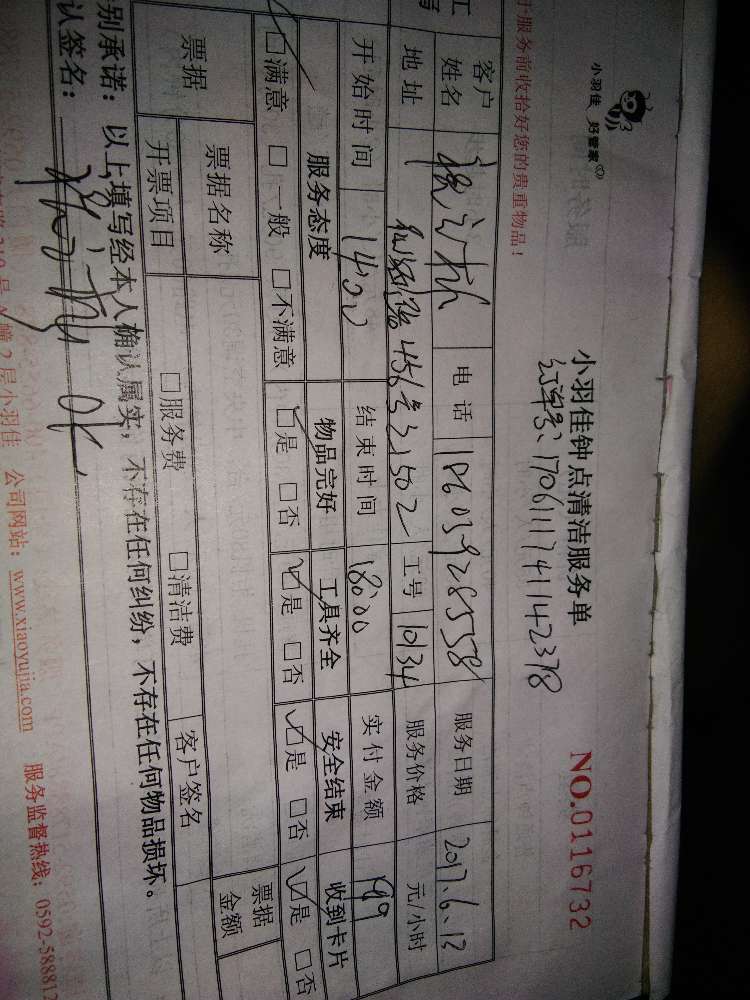 小羽佳 好管家
于服务前收拾好您的贵重物品！
小羽佳钟点清洁服务单
NO.0116732
订单号：17061117411142378
客户姓名 电话 18603928558 服务日期 2017.6.13
地址 456号 502 工号 10134 服务价格 元/小时
开始时间 14:00 结束时间 18:00 实付金额 199
服务态度 物品完好 工具齐全 安全结束 收到卡片
☑满意 □一般 □不满意 ☑是 □否 ☑是 □否 ☑是 □否 ☑是 □否
票据 票据名称 票据金额
开票项目 □服务费 □清洁费 客户签名
别承诺：以上填写经本人确认属实，不存在任何纠纷，不存在任何物品损坏。
认签名： OK
2层小羽佳 公司网站：www.xiaoyujia.com 服务监督热线：0592-588812